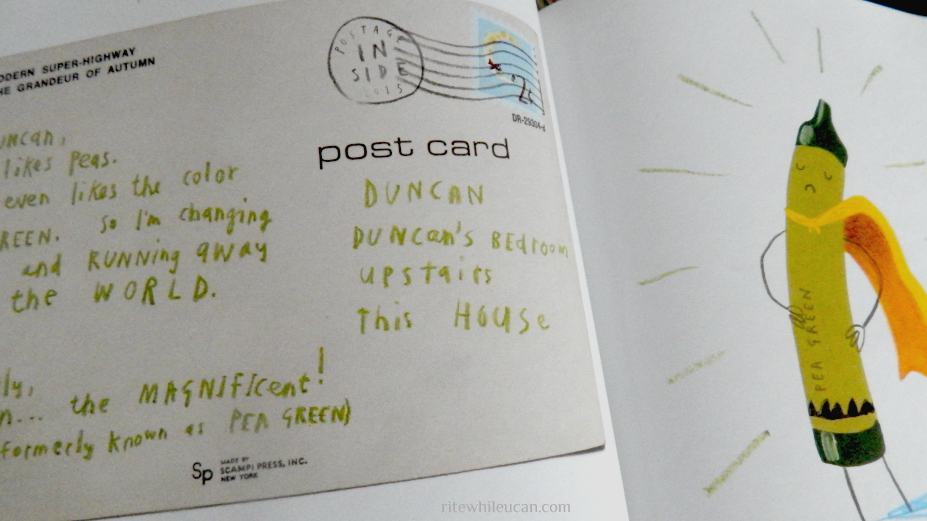 ODERN SUPER-HIGHWAY
HE GRANDEUR OF AUTUMN
POSTAGE
IN
SIDE
2015
2¢
DR-29304-d
post card
uncan,
likes peas.
even likes the color
REEN. so I'm changing
and RUNNING away
the WORLD.
ly,
n... the MAGNIFicent!
formerly known as PEA GREEN)
DUNCAN
DUNCan's BEDroom
upstairs
This House
Sp
MADE BY
SCAMPI PRESS, INC.
NEW YORK
PEA GREEN
ritewhileucan.com